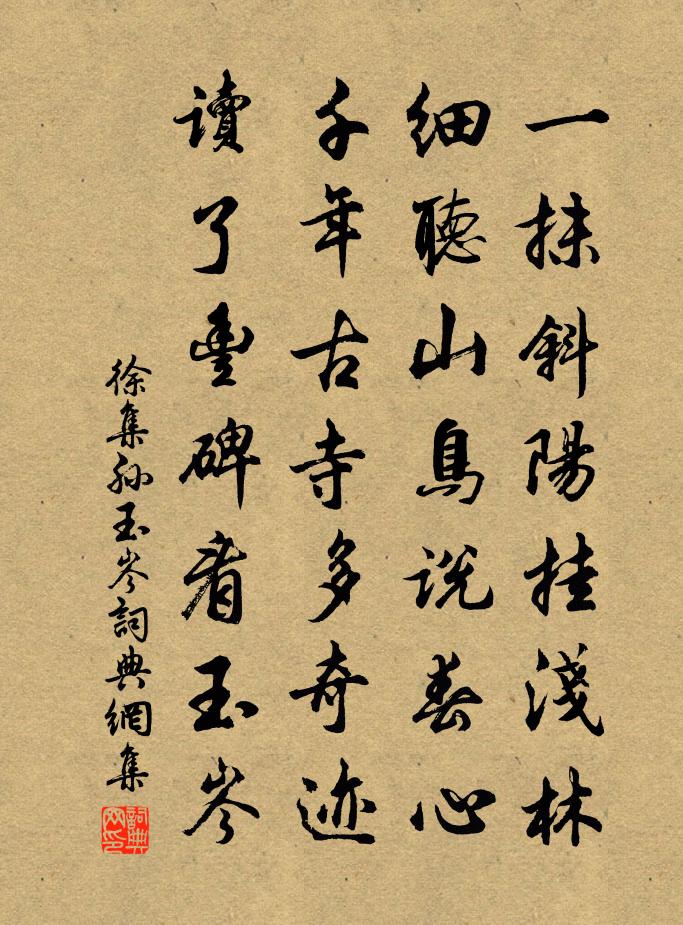 一抹斜陽挂淺林
細聽山鳥説春心
千年古寺多奇迹
讀了豐碑看玉岑
徐集孙玉岑詞典網集
詞典网印